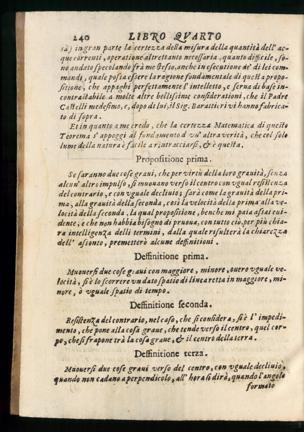 240 LIBRO QVARTO
sà) in gran parte la certezza della misura della quantità dell' ac-
que correnti, operatione altrettanto necessaria, quanto difficile, so-
no andato specolando frà me stesso, anche in esecutione de' di lei com-
mandi, quale posia essere la ragione fondamentale di questa propo-
sitione, che appaghi perfettamente l' intelletto, e serua di base in-
contrastabile a molte altre bellissime considerationi, che il Padre
Castelli medesimo, e, dopo di lui, il Sig. Baratticri vi hanno fabrica-
to di sopra.
Et in quanto a me credo, che la certezza Matematica di questo
Teorema s' appoggi al fondamento d' vn' altra verità, che col solo
lume della natura è facile a rintracciarsi, & è questa.
Propositione prima.
Se saranno due cose graui, che per virtù della loro grauità, senza
alcun' altro impulso, si muouano verso il centro con vgual resistenza
del contrario, e con vguale decliuio; sarà come la grauità della pri-
ma, alla grauità della seconda, così la velocità della prima alla ve-
locità della seconda. la qual propositione, benche mi paia assai eui-
dente, e che non habbia bisogno di proua, con tutto ciò, per più chia-
ra intelligenza delli termini, dalla quale risulterà la chiarezza
dell' asionto, premetterò alcune deffinitioni.
Deffinitione prima.
Muouersi due cose graui con maggiore, minore, ouero vguale ve-
locità, si è lo scorrere vn dato spatio di linea retta in maggiore, mi-
nore, ò vguale spatio di tempo.
Deffinitione seconda.
Resistenza del contrario, nel caso, che si considera, si è l' impedi-
mento, che pone alla cosa graue, che tende verso il centro, quel cor-
po, che si frapone trà la cosa graue, & il centro della terra.
Deffinitione terza.
Muouersi due cose graui verso del centro, con vguale decliuio,
quando non cadano a perpendicolo, all' hora si dirà, quando l'angolo
formato